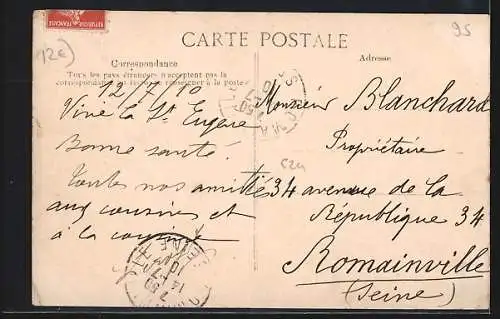 12c
95
CARTE POSTALE
Correspondance
Adresse
Tous les pays étrangers n'acceptent pas la
correspondance
à la poste
12/7/10
Vive la St Eugene
Bonne santé.
Toutes nos amitiés
aux cousines et
à la
Monsieur Blanchard
Propriétaire
34 avenue de la
République 34
Romainville
(Seine)